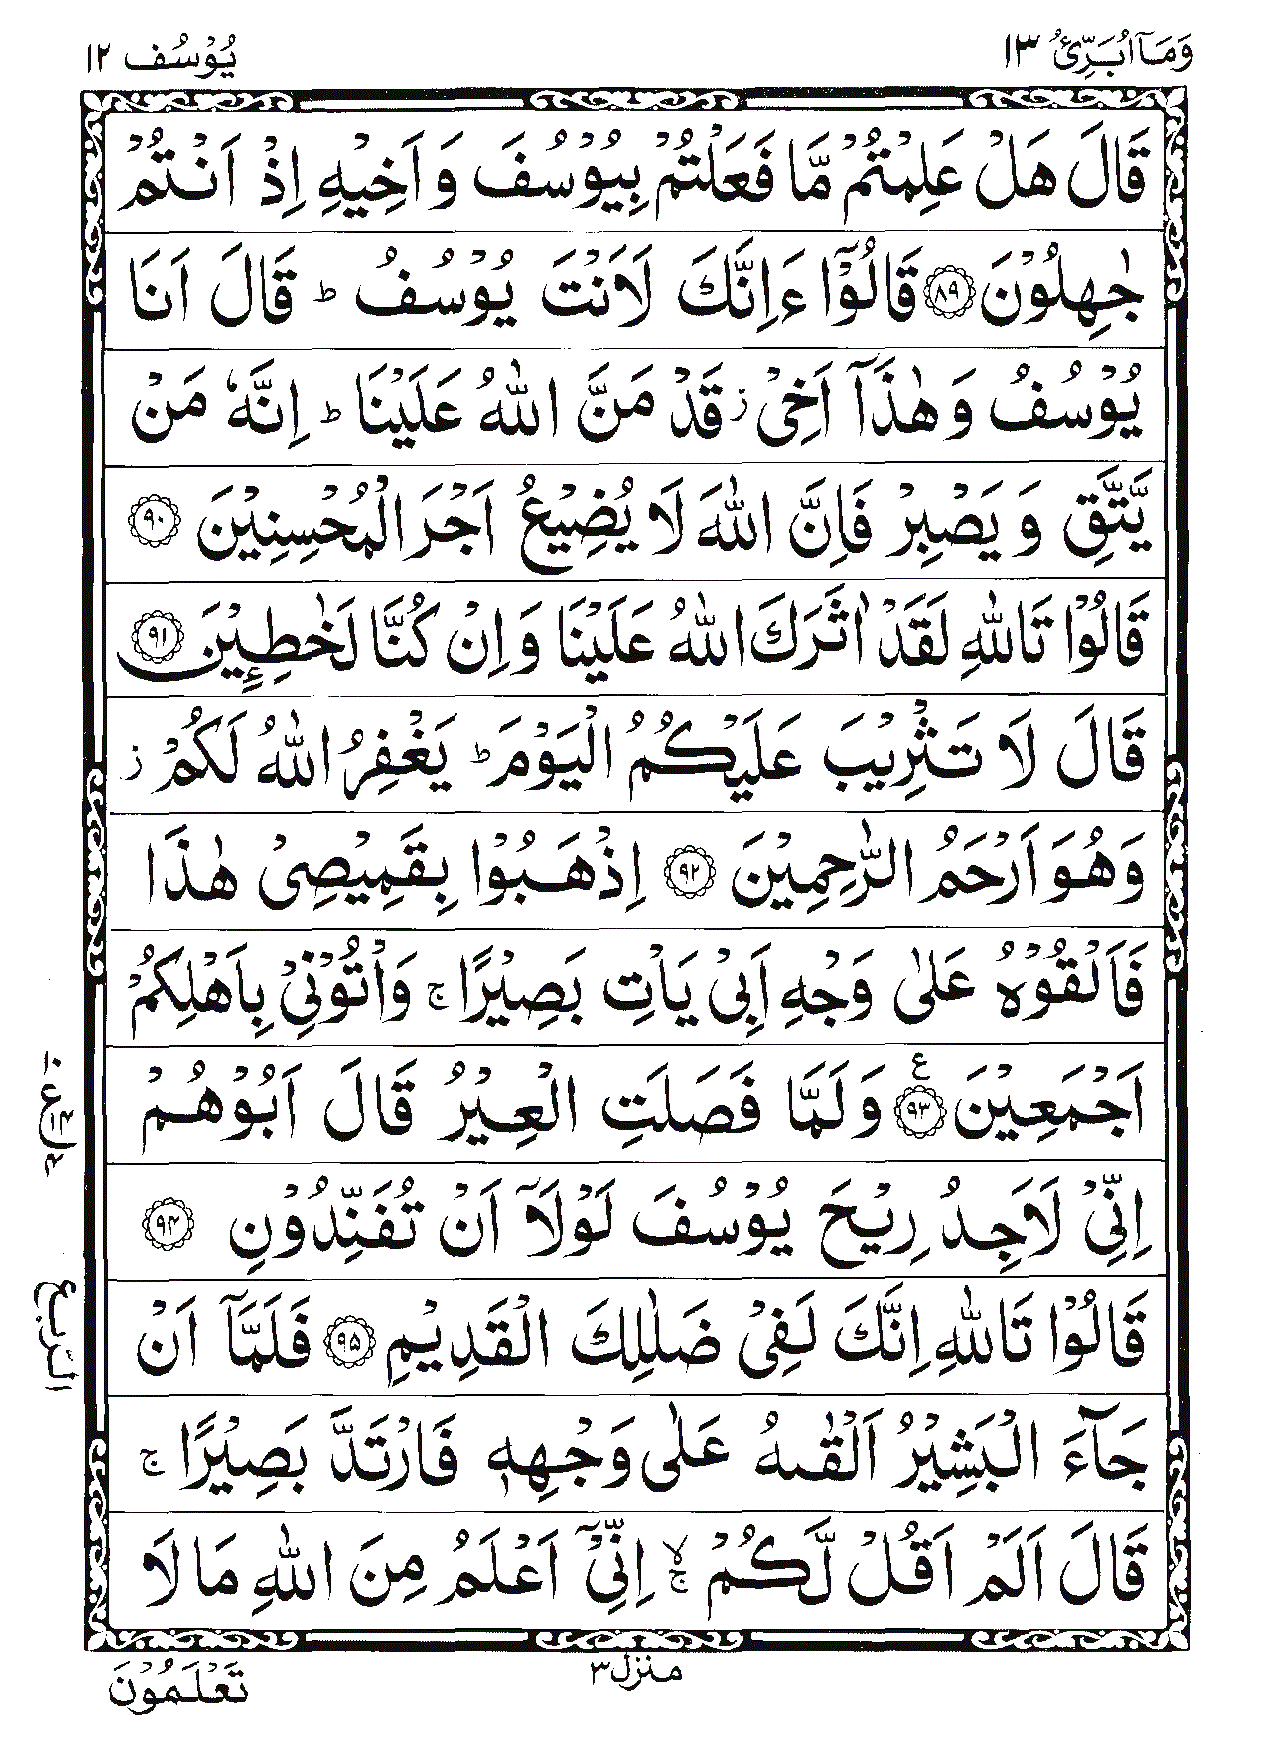 وَمَآ اُبَرِّئُ ١٣
يُوْسُف ١٢
قَالَ هَلْ عَلِمْتُمْ مَّا فَعَلْتُمْ بِيُوْسُفَ وَ اَخِيْهِ اِذْ اَنْتُمْ
جٰهِلُوْنَ ﴿۸۹﴾ قَالُوْۤا ءَاِنَّكَ لَاَنْتَ يُوْسُفُ ؕ قَالَ اَنَا
يُوْسُفُ وَ هٰذَاۤ اَخِىْ ز قَدْ مَنَّ اللّٰهُ عَلَيْنَا ؕ اِنَّهٗ مَنْ
يَّتَّقِ وَ يَصْبِرْ فَاِنَّ اللّٰهَ لَا يُضِيْعُ اَجْرَ الْمُحْسِنِيْنَ ﴿۹۰﴾
قَالُوْا تَاللّٰهِ لَقَدْ اٰثَرَكَ اللّٰهُ عَلَيْنَا وَ اِنْ كُنَّا لَخٰطِـِٕيْنَ ﴿۹۱﴾
قَالَ لَا تَثْرِيْبَ عَلَيْكُمُ الْيَوْمَ ؕ يَغْفِرُ اللّٰهُ لَكُمْ ز
وَهُوَ اَرْحَمُ الرّٰحِمِيْنَ ﴿۹۲﴾ اِذْهَبُوْا بِقَمِيْصِىْ هٰذَا
فَاَلْقُوْهُ عَلٰى وَجْهِ اَبِىْ يَاْتِ بَصِيْرًا ج وَاْتُوْنِىْ بِاَهْلِكُمْ
اَجْمَعِيْنَ ﴿۹۳﴾ ع وَلَمَّا فَصَلَتِ الْعِيْرُ قَالَ اَبُوْهُمْ
اِنِّىْ لَاَجِدُ رِيْحَ يُوْسُفَ لَوْلَاۤ اَنْ تُفَنِّدُوْنِ ﴿۹۴﴾
قَالُوْا تَاللّٰهِ اِنَّكَ لَفِىْ ضَلٰلِكَ الْقَدِيْمِ ﴿۹۵﴾ فَلَمَّاۤ اَنْ
جَآءَ الْبَشِيْرُ اَلْقٰىهُ عَلٰى وَجْهِهٖ فَارْتَدَّ بَصِيْرًا ج
قَالَ اَلَمْ اَقُلْ لَّكُمْ لا ج اِنِّىْۤ اَعْلَمُ مِنَ اللّٰهِ مَا لَا
الرّبع
منزل ٣
تَعْلَمُوْنَ